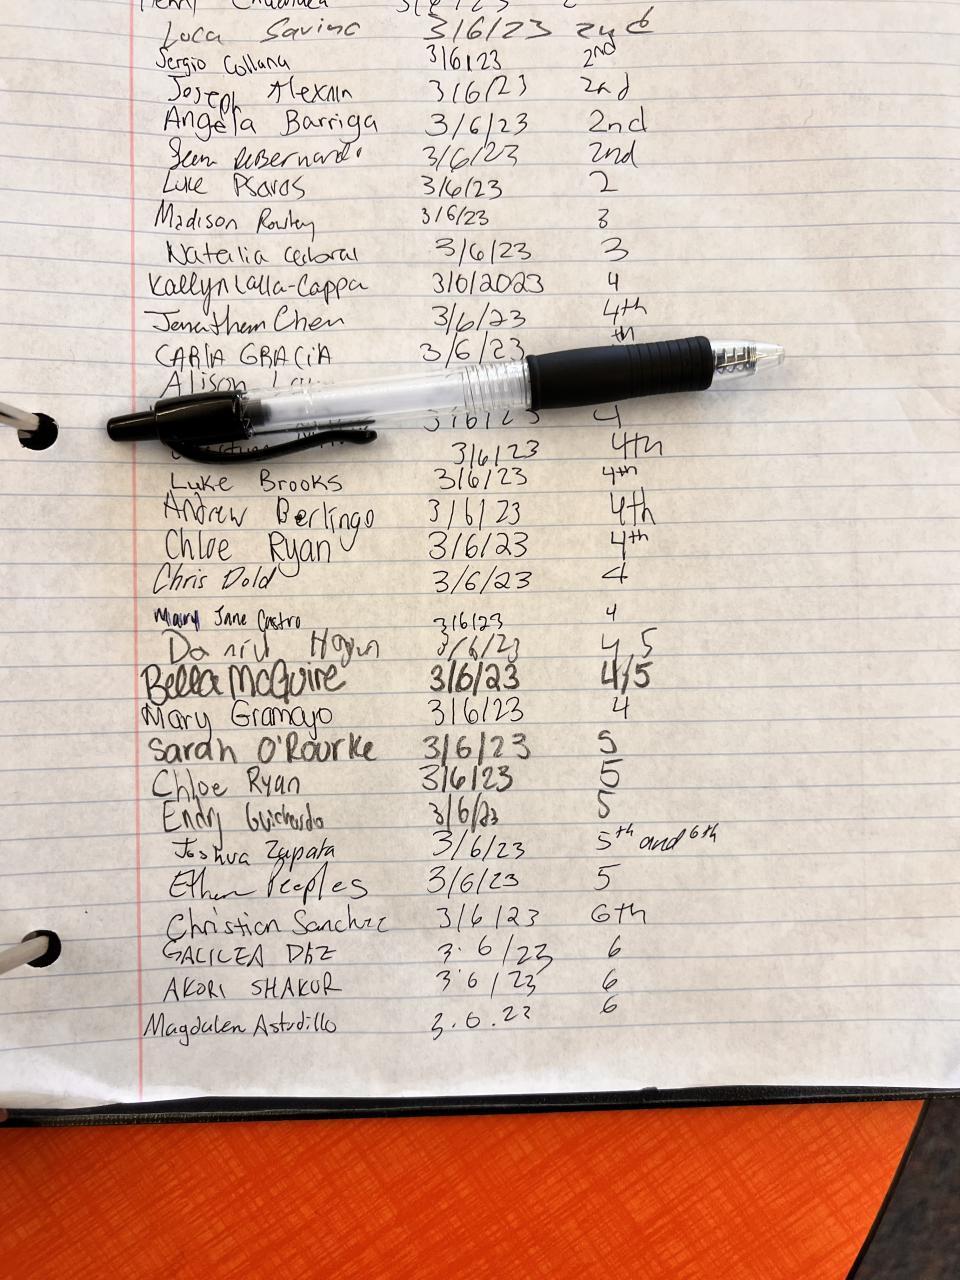 Luca Savino 3/6/23 2nd
Sergio Collana 3/6/23 2nd
Joseph 3/6/23 2nd
Angela Barriga 3/6/23 2nd
DeBernardo 3/6/23 2nd
Luke Psaros 3/6/23 2
Madison 3/6/23 3
Natalia 3/6/23 3
Kaelyn Lalla-Cappa 3/6/2023 4
Jonathan Chen 3/6/23 4th
CARlA GRACiA 3/6/23 th
Alison
3/6/23 4
3/6/23 4th
Luke Brooks 3/6/23 4th
Andrew Berlingo 3/6/23 4th
Chloe Ryan 3/6/23 4th
Chris Dold 3/6/23 4
Mary Jane Castro 3/6/23 4
3/6/23 4 5
Bella McGuire 3/6/23 4/5
Mary Gramayo 3/6/23 4
Sarah O'Rourke 3/6/23 5
Chloe Ryan 3/6/23 5
Guichardo 3/6/23 5
Joshua Zapata 3/6/23 5th and 6th
Ethan Peeples 3/6/23 5
Christian Sanchez 3/6/23 6th
GALILEA 3·6/23 6
AKORI SHAKUR 3·6/23 6
Magdalen Astudillo 3.6.23 6